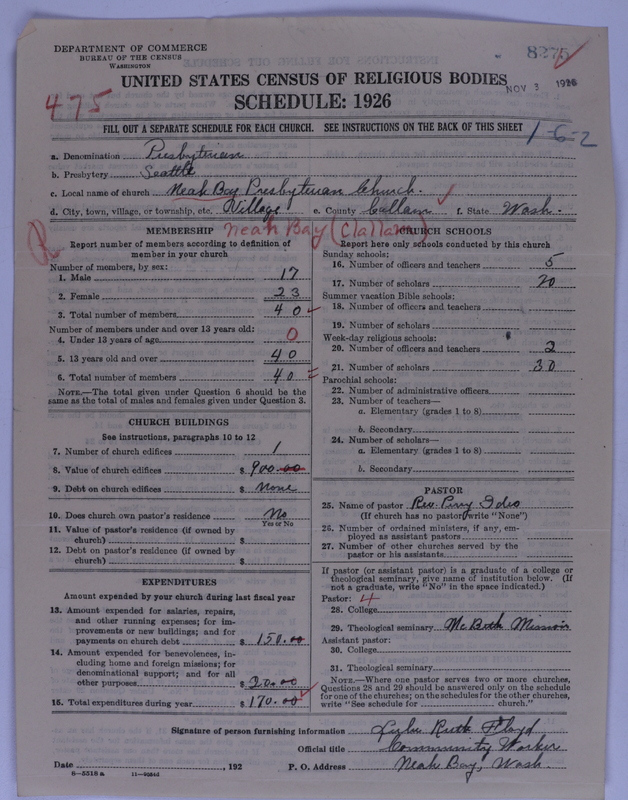 DEPARTMENT OF COMMERCE
BUREAU OF THE CENSUS
WASHINGTON
8275
UNITED STATES CENSUS OF RELIGIOUS BODIES
NOV 3 1926
475
SCHEDULE: 1926
FILL OUT A SEPARATE SCHEDULE FOR EACH CHURCH. SEE INSTRUCTIONS ON THE BACK OF THIS SHEET
1-6-2
a. Denomination Presbyterian
b. Presbytery Seattle
c. Local name of church Neah Bay Presbyterian Church.
d. City, town, village, or township, etc. Village e. County Callam f. State Wash.
Neah Bay (Clallam)
MEMBERSHIP
Report number of members according to definition of
member in your church
Number of members, by sex:
1. Male 17
2. Female 23
3. Total number of members 40
Number of members under and over 13 years old:
4. Under 13 years of age 0
5. 13 years old and over 40
6. Total number of members 40
NOTE.—The total given under Question 6 should be
same as the total of males and females given under Question 3.
CHURCH BUILDINGS
See instructions, paragraphs 10 to 12
7. Number of church edifices 1
8. Value of church edifices $ 900.00
9. Debt on church edifices $ None
10. Does church own pastor's residence No
Yes or No
11. Value of pastor's residence (if owned by
church) $
12. Debt on pastor's residence (if owned by
church) $
EXPENDITURES
Amount expended by your church during last fiscal year
13. Amount expended for salaries, repairs,
and other running expenses; for im-
provements or new buildings; and for
payments on church debt $ 150.00
14. Amount expended for benevolences, in-
cluding home and foreign missions; for
denominational support; and for all
other purposes $ 20.00
15. Total expenditures during year $ 170.00
CHURCH SCHOOLS
Report here only schools conducted by this church
Sunday schools:
16. Number of officers and teachers 5
17. Number of scholars 70
Summer vacation Bible schools:
18. Number of officers and teachers
19. Number of scholars
Week-day religious schools:
20. Number of officers and teachers 2
21. Number of scholars 30
Parochial schools:
22. Number of administrative officers
23. Number of teachers—
a. Elementary (grades 1 to 8)
b. Secondary
24. Number of scholars—
a. Elementary (grades 1 to 8)
b. Secondary
PASTOR
25. Name of pastor Rev. Perry
(If church has no pastor, write "None")
26. Number of ordained ministers, if any, em-
ployed as assistant pastors
27. Number of other churches served by the
pastor or his assistants
If pastor (or assistant pastor) is a graduate of a college or
theological seminary, give name of institution below. (If
not a graduate, write "No" in the space indicated.)
Pastor: 4
28. College
29. Theological seminary McBeth Mission
Assistant pastor:
30. College
31. Theological seminary
NOTE.—Where one pastor serves two or more churches,
Questions 28 and 29 should be answered only on the schedule
for one of the churches; on the schedules for the other churches,
write "See schedule for church."
Signature of person furnishing information Lulu Ruth Floyd
Official title Community Worker
Date , 192 P. O. Address Neah Bay, Wash.
8—5518 a